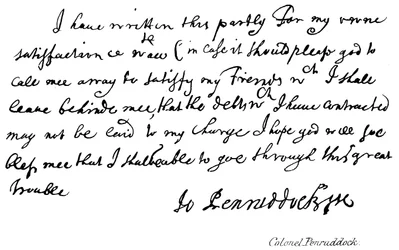 I have written this partly For my owne
satisfaction & (in case it should please god to
call mee away to satisfy my Freinds wch I shall
leave behinde mee, that the debts wch I have contracted
may not be laid to my charge I hope god will soe
bless mee that I shall be able to goe through this great
trouble
Jo Penruddock
Colonel Penruddock.